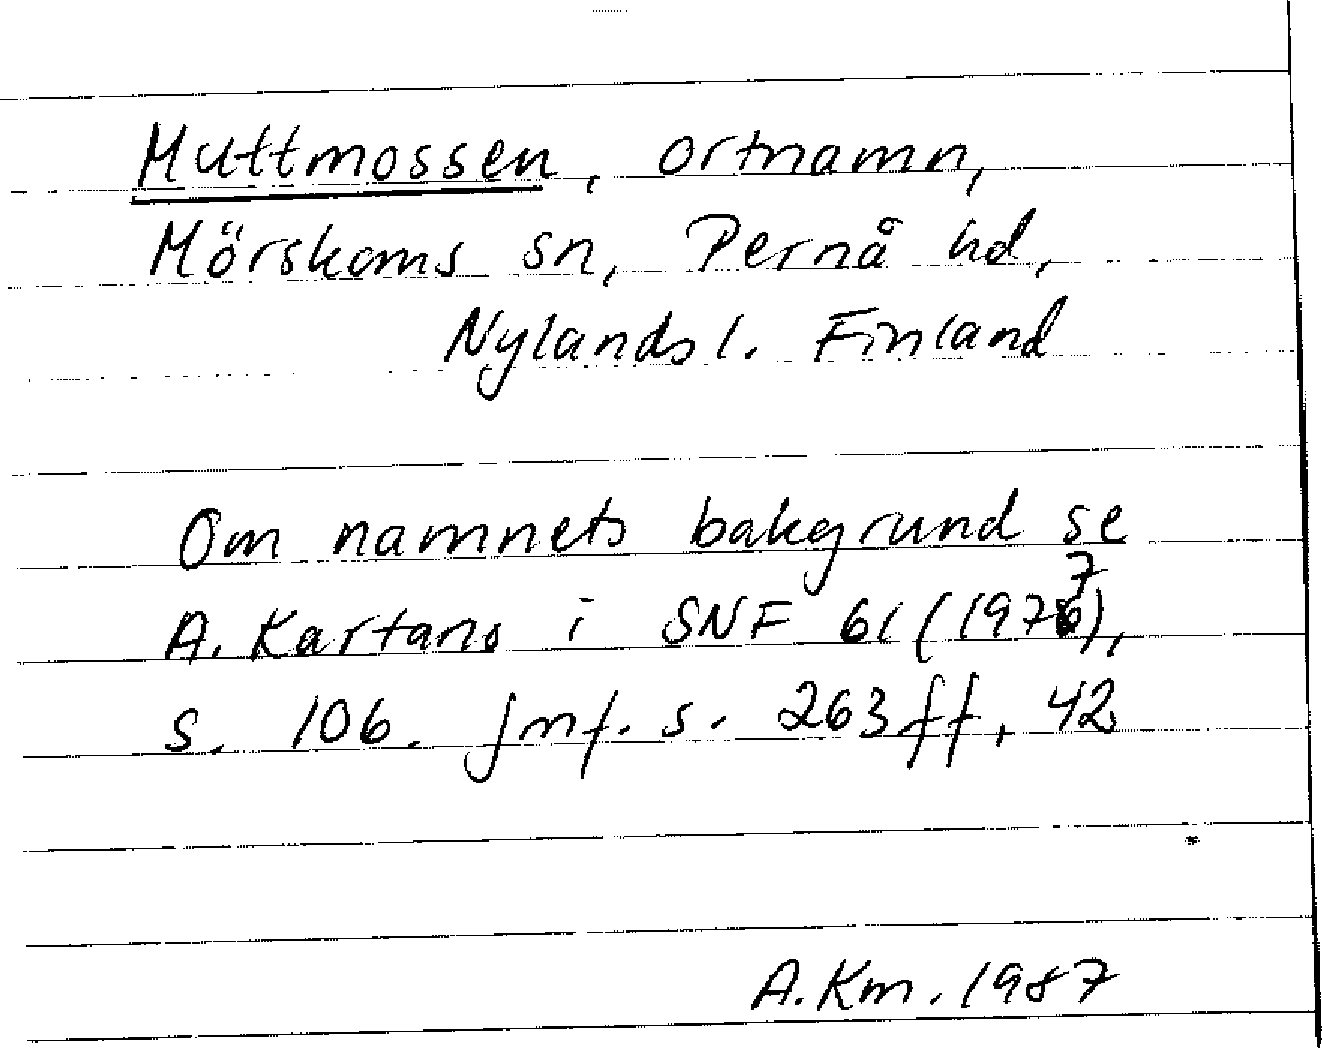 Muttmossen, ortnamn,
Mörskoms sn, Pernå hd,
Nylands l. Finland
Om namnets bakgrund se
A. Kartano i SNF 61 (1977),
s. 106. Jmf. s. 263 ff, 42
A.Km. 1987